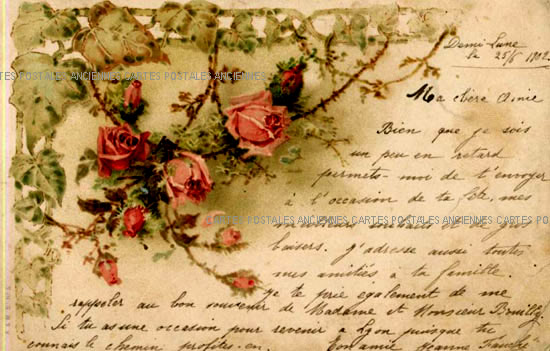 Demi-Lune
le 25/6 1902
Ma chère Amie
Bien que je sois
un peu en retard
permets-moi de t'envoyer
à l'occasion de ta fête, mes
CARTES POSTALES ANCIENNES CARTES POSTALES ANCIENNES CARTES POSTALES ANCIENNES CARTES POSTALES ANCIENNES
baisers. J'adresse aussi toutes
mes amitiés à ta famille.
Je te prie également de me
rappeler au bon souvenir de Madame et Monsieur
Si tu as une occasion pour revenir à Lyon puisque tu
connais le chemin profites-en. Ton amie Jeanne